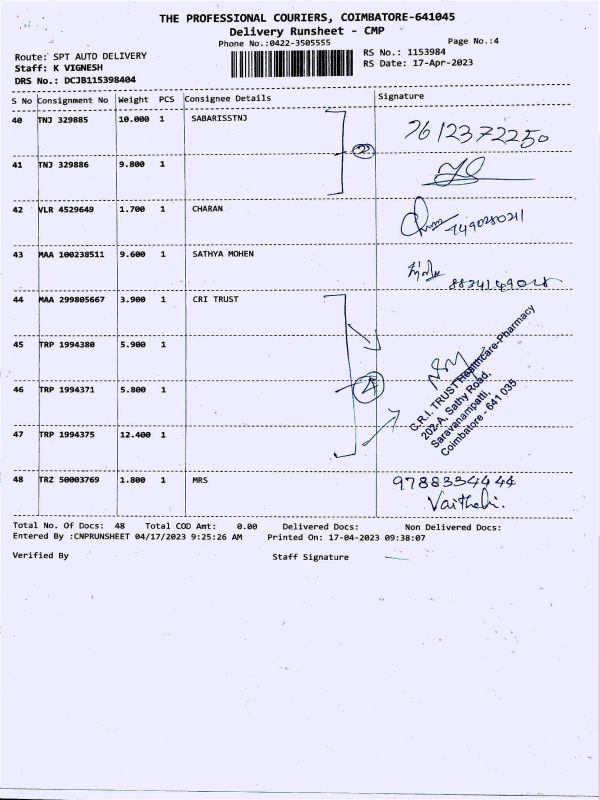 THE PROFESSIONAL COURIERS, COIMBATORE-641045
Delivery Runsheet - CMP
Phone No.:0422-3505555
Page No.:4
Route: SPT AUTO DELIVERY
RS No.: 1153984
Staff: K VIGNESH
RS Date: 17-Apr-2023
DRS No.: DCJB115398404
S No Consignment No Weight PCS Consignee Details Signature
40 TNJ 329885 10.000 1 SABARISSTNJ 7612372250
2
41 TNJ 329886 9.800 1
42 VLR 4529649 1.700 1 CHARAN
43 MAA 100238511 9.600 1 SATHYA MOHEN
44 MAA 299805667 3.900 1 CRI TRUST
45 TRP 1994380 5.900 1
46 TRP 1994371 5.800 1
4
C.R.I. TRUST Healthcare-Pharmacy
202-A, Sathy Road,
Saravanampatti,
Coimbatore - 641 035
47 TRP 1994375 12.400 1
48 TRZ 50003769 1.800 1 MRS 9788334444
Vaithehi.
Total No. Of Docs: 48 Total COD Amt: 0.00 Delivered Docs: Non Delivered Docs:
Entered By :CNPRUNSHEET 04/17/2023 9:25:26 AM Printed On: 17-04-2023 09:38:07
Verified By Staff Signature